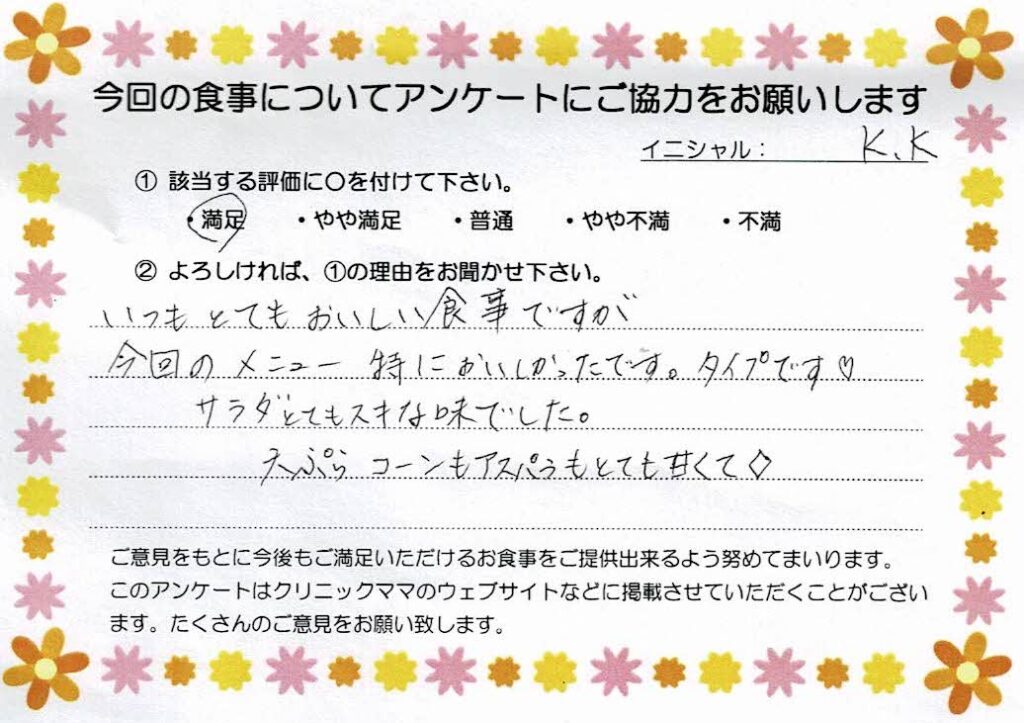 今回の食事についてアンケートにご協力をお願いします
イニシャル： K.K
① 該当する評価に〇を付けて下さい。
・満足 ・やや満足 ・普通 ・やや不満 ・不満
② よろしければ、①の理由をお聞かせ下さい。
いつも とても おいしい食事ですが
今回の メニュー 特においしかったです。タイプです♡
サラダとてもスキな味でした。
天ぷら コーンもアスパラもとても甘くて◇
ご意見をもとに今後もご満足いただけるお食事をご提供出来るよう努めてまいります。
このアンケートはクリニックママのウェブサイトなどに掲載させていただくことがござい
ます。たくさんのご意見をお願い致します。